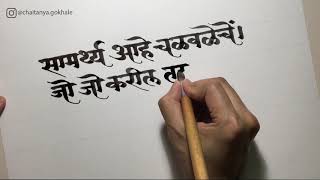 @chaitanya.gokhale
सामर्थ्य आहे चळवळेचें।
जो जो करील तर